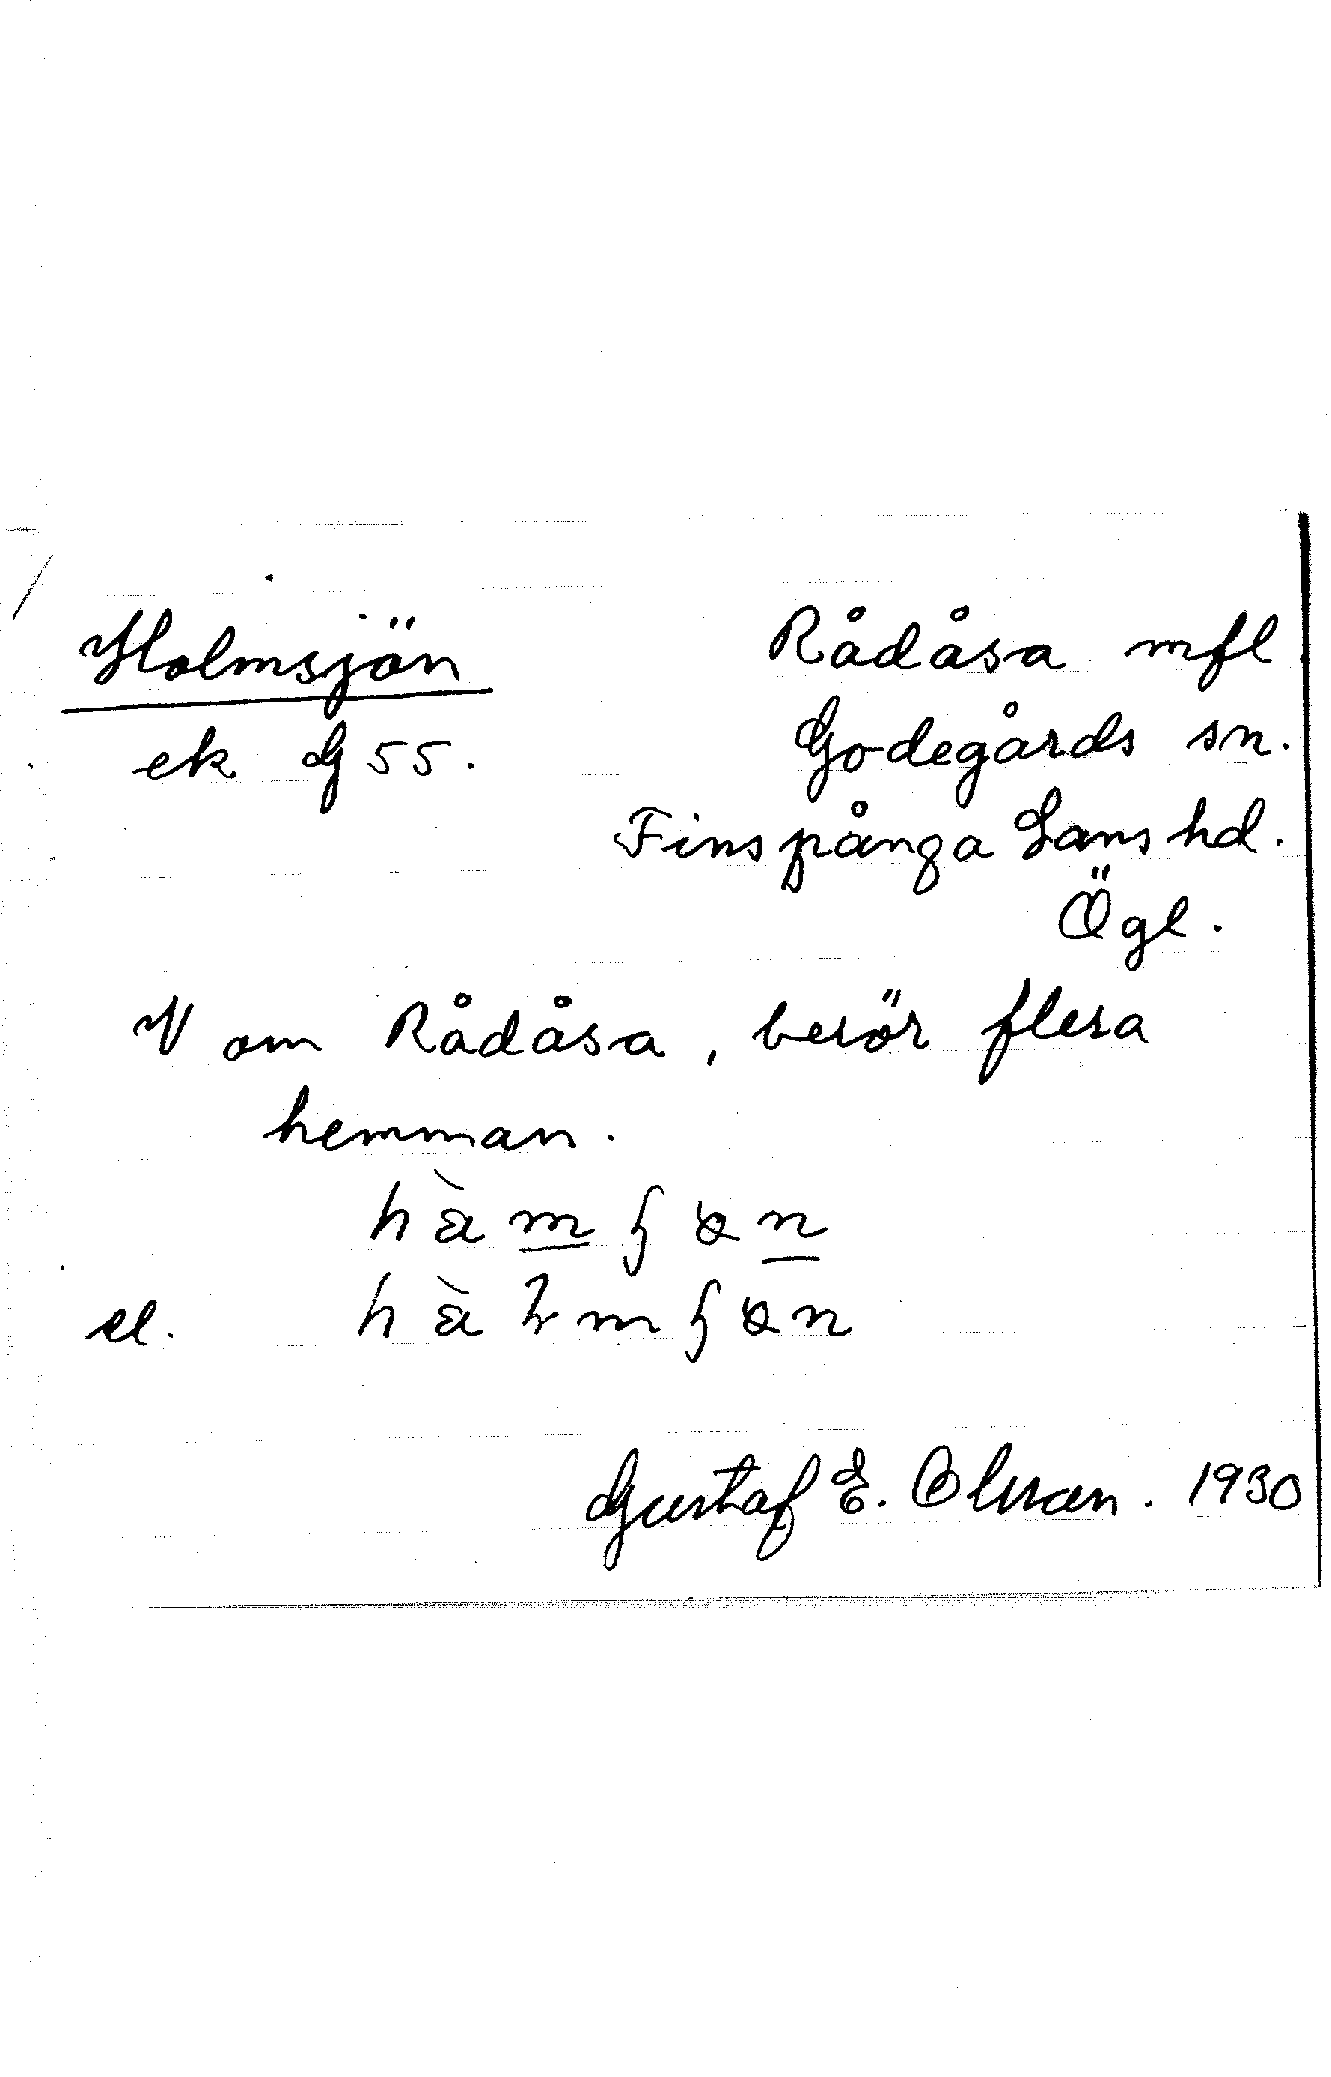 Holmsjön
ek G 55.
Rådåsa mfl.
Godegårds sn.
Finspånga Läns hd.
Ögl.
V om Rådåsa, berör flera
hemman.
el.
Gustaf E. Olsson. 1930